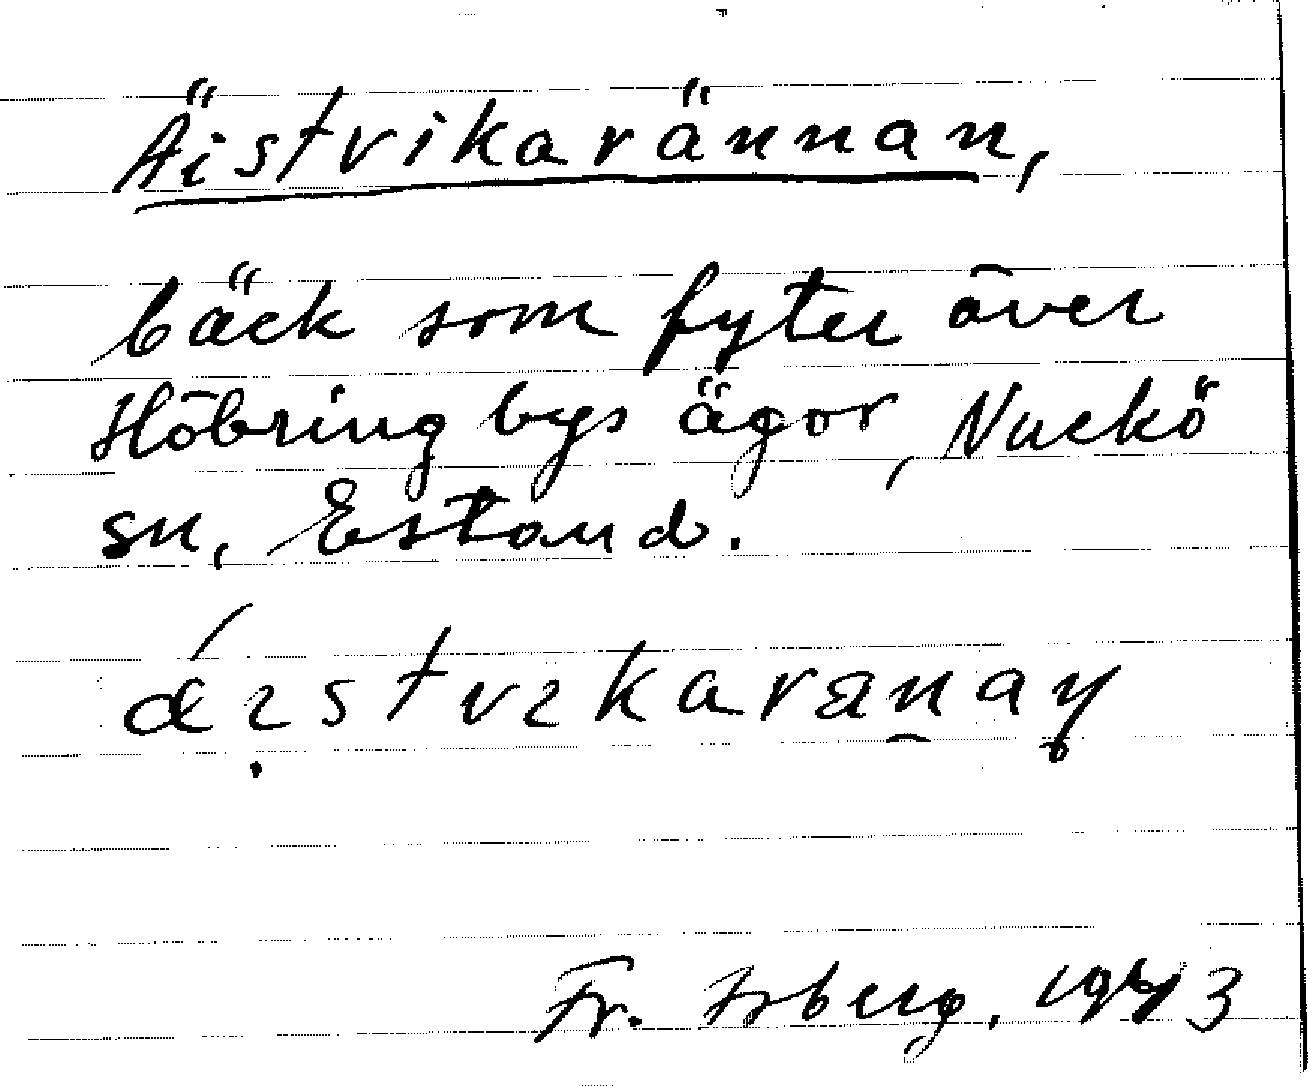 Äistvikarännan,
bäck som fyter över
Höbring bys ägor, Nuckö
sn, Estland.
Fr. Isberg. 1943